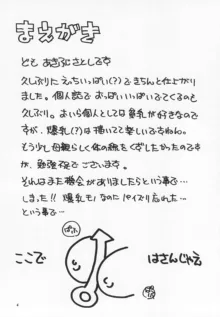 まえがき
ども あきふじさとしです
久しぶりに えっちいっぱい(?)できちんと仕上がり
ました。個人誌で おっぱいいっぱいでてくるのも
久しぶり。よいち個人としては 貧乳が好きなので
すが、爆乳(?)は描いてて楽しいですねん。
もう少し母親らしく体の線をくずしたかったので
すが、勉強不足でございます。
それはまた機会がありましたらという事で…
しまった!!爆乳モノなのにパイズリ忘れた…
という事で…
ここで
はさんじゃえ